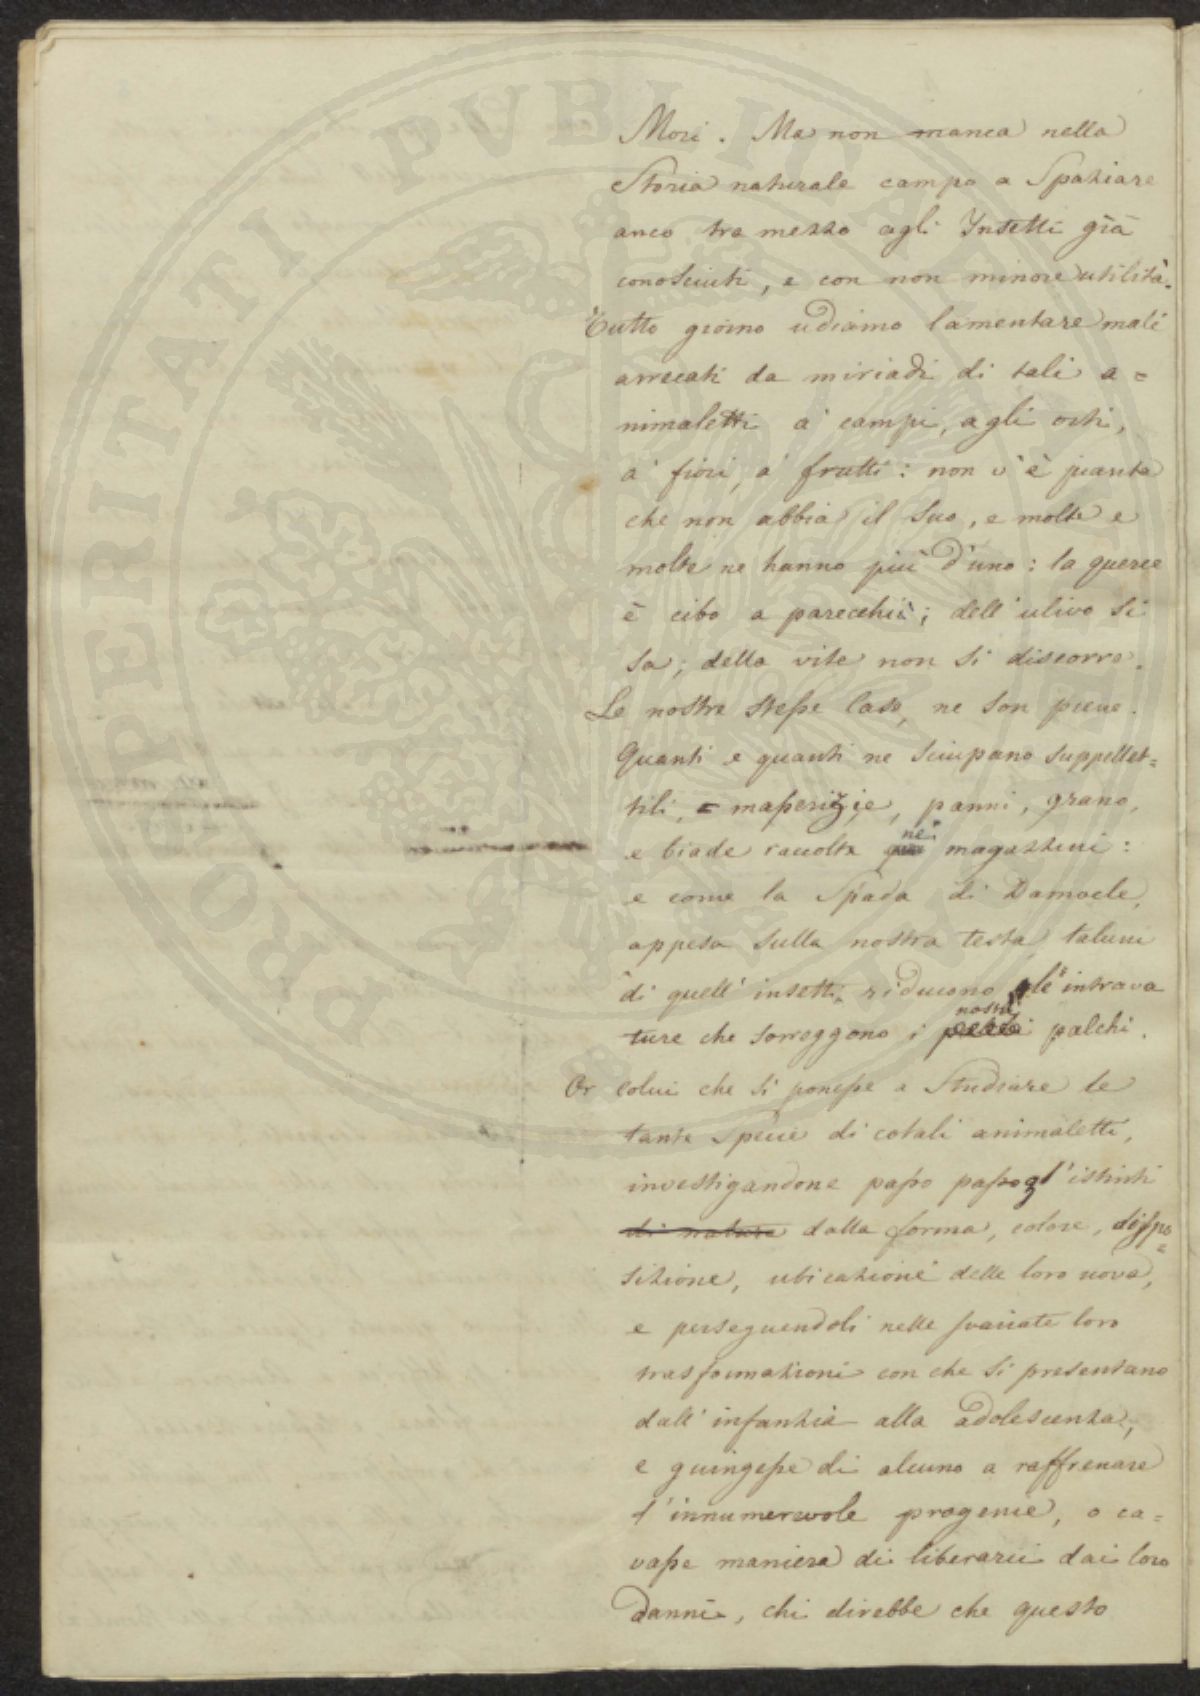 Mori. Ma non manca nella
Storia naturale campo a Spaziare
anco tra mezzo agli Insetti già
conosciuti, e con non minore utilità.
Tutto giorno udiamo lamentare mali
arrecati da miriadi di tali a=
nimaletti a' campi, agli orti,
a' fiori, a' frutti: non v'è pianta
che non abbia il suo, e molte e
molte ne hanno più d'uno: la querce
è cibo a parecchii; dell'ulivo si
sa; della vite non si discorre.
Le nostre stesse case, ne son piene.
Quanti e quanti ne sciupano suppellet=
tili, = masserizie, panni, grano,
e biade raccolte nei magazzini:
e come la Spada di Damocle,
appesa sulla nostra testa, taluni
di quell'insetti riducono le intrava
ture che sorreggono i nostri palchi.
Or colui che si ponesse a Studiare le
tante Specie di cotali animaletti,
investigandone passo passo gl'istinti
di natura dalla forma, colore, dispo
=
sizione, ubicazione delle loro uova,
e perseguendoli nelle svariate loro
trasformazioni con che si presentano
dall'infanzia alla adolescenza,
e giungesse di alcuno a raffrenare
l'innumerevole progenie, o ca=
vasse maniera di liberarci dai loro
danni, chi direbbe che questo
PROPERITATI PVBLICAE